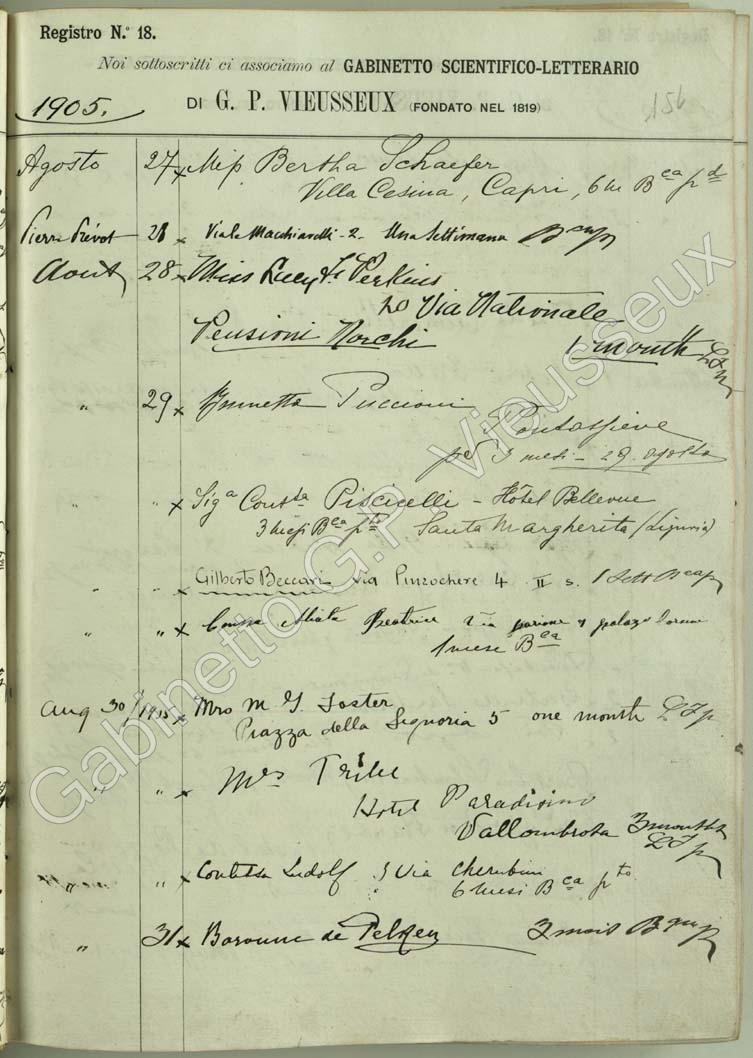 Registro N.º 18.
Noi sottoscritti ci associamo al GABINETTO SCIENTIFICO-LETTERARIO
1905.
DI G. P. VIEUSSEUX (FONDATO NEL 1819)
151
Agosto 27 x Miss Bertha Schaefer
Villa Cesina, Capri, 6 M Bca pd
Pierre Prévot 28 x Viale Macchiavelli - 2 - Una Settimana
Aout 28 x Miss Lucy F. Perkins
20 Via Nationale
Pensioni Norchi 1 month
" 29 x Brunetto Puccioni
Pontassieve
per 3 mesi - 29 agosto
" " x Siga Contssa Piscicelli - Hôtel Bellevue
3 Mesi Bca pto Santa Margherita (Liguria)
" " x Gilberto Beccari Via Pinzochere 4 II s. 1 Sett
" " x Beatrice Via parione palazo
1 mese Bca
Aug 30/1905 x Mrs M G Foster
Piazza della Signoria 5 one month
" " x Mrs Tribe
Hotel Paradisino
Vallombrosa 3 months
" x Contessa Ludolf 5 Via Cherubini
6 Mesi Bca pto
" 31 x Baronne de Pelken 3 mois
Gabinetto G.P. Vieusseux